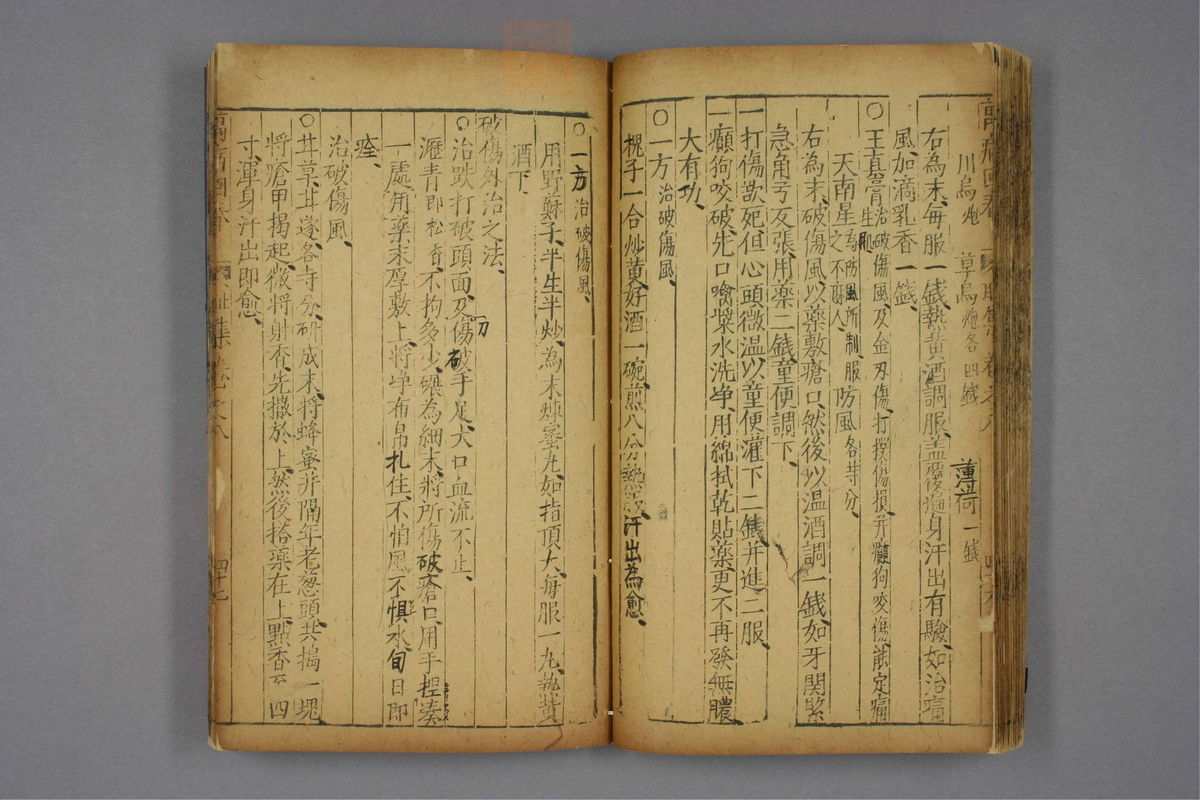 川烏炮 草烏炮各四錢 薄荷一錢
右為末、每服一錢、熱黃酒調服、盖覆遍身汗出有驗、如治痛
風、加滴乳香一錢、
〇王真膏治破傷風、及金刃傷、打撲傷損、并癲狗咬傷、能定痛生肌
天南星為防風所制服之不麻人、 防風各等分、
右為末、破傷風、以藥敷瘡口、然後以温酒調一錢、如牙關緊
急、角弓反張、用藥二錢、童便調下、
一打傷欲死、但心頭微温、以童便灌下二錢、并進二服、
一癲狗咬破、先口噙漿水洗净、用綿拭乾貼藥、更不再發、無膿
大有功、
〇一方治破傷風、
槐子一合炒黃、好酒一碗、煎八分、熱服、汗出為愈、
〇一方治破傷風、
用野蘇子、半生半炒、為末、煉蜜丸、如指頂大、每服一丸、熱黃
酒下、
破傷外治之法、
〇治跌打破頭面、及刀傷破手足、大口血流不止、
瀝青即松香、不拘多少、碾為細末、將所傷破瘡口、用手捏凑
一處、用藥末厚敷上、將净布帛札住、不怕風、不惧水、旬日即
痊、
治破傷風、
〇甘草、甘遂、各等分、研成末、將蜂蜜并隔年老葱頭、共搗一塊、
將瘡甲揭起、微將射香、先撒於上、然後搭藥在上、點香至四
寸、渾身汗出即愈、
四十七